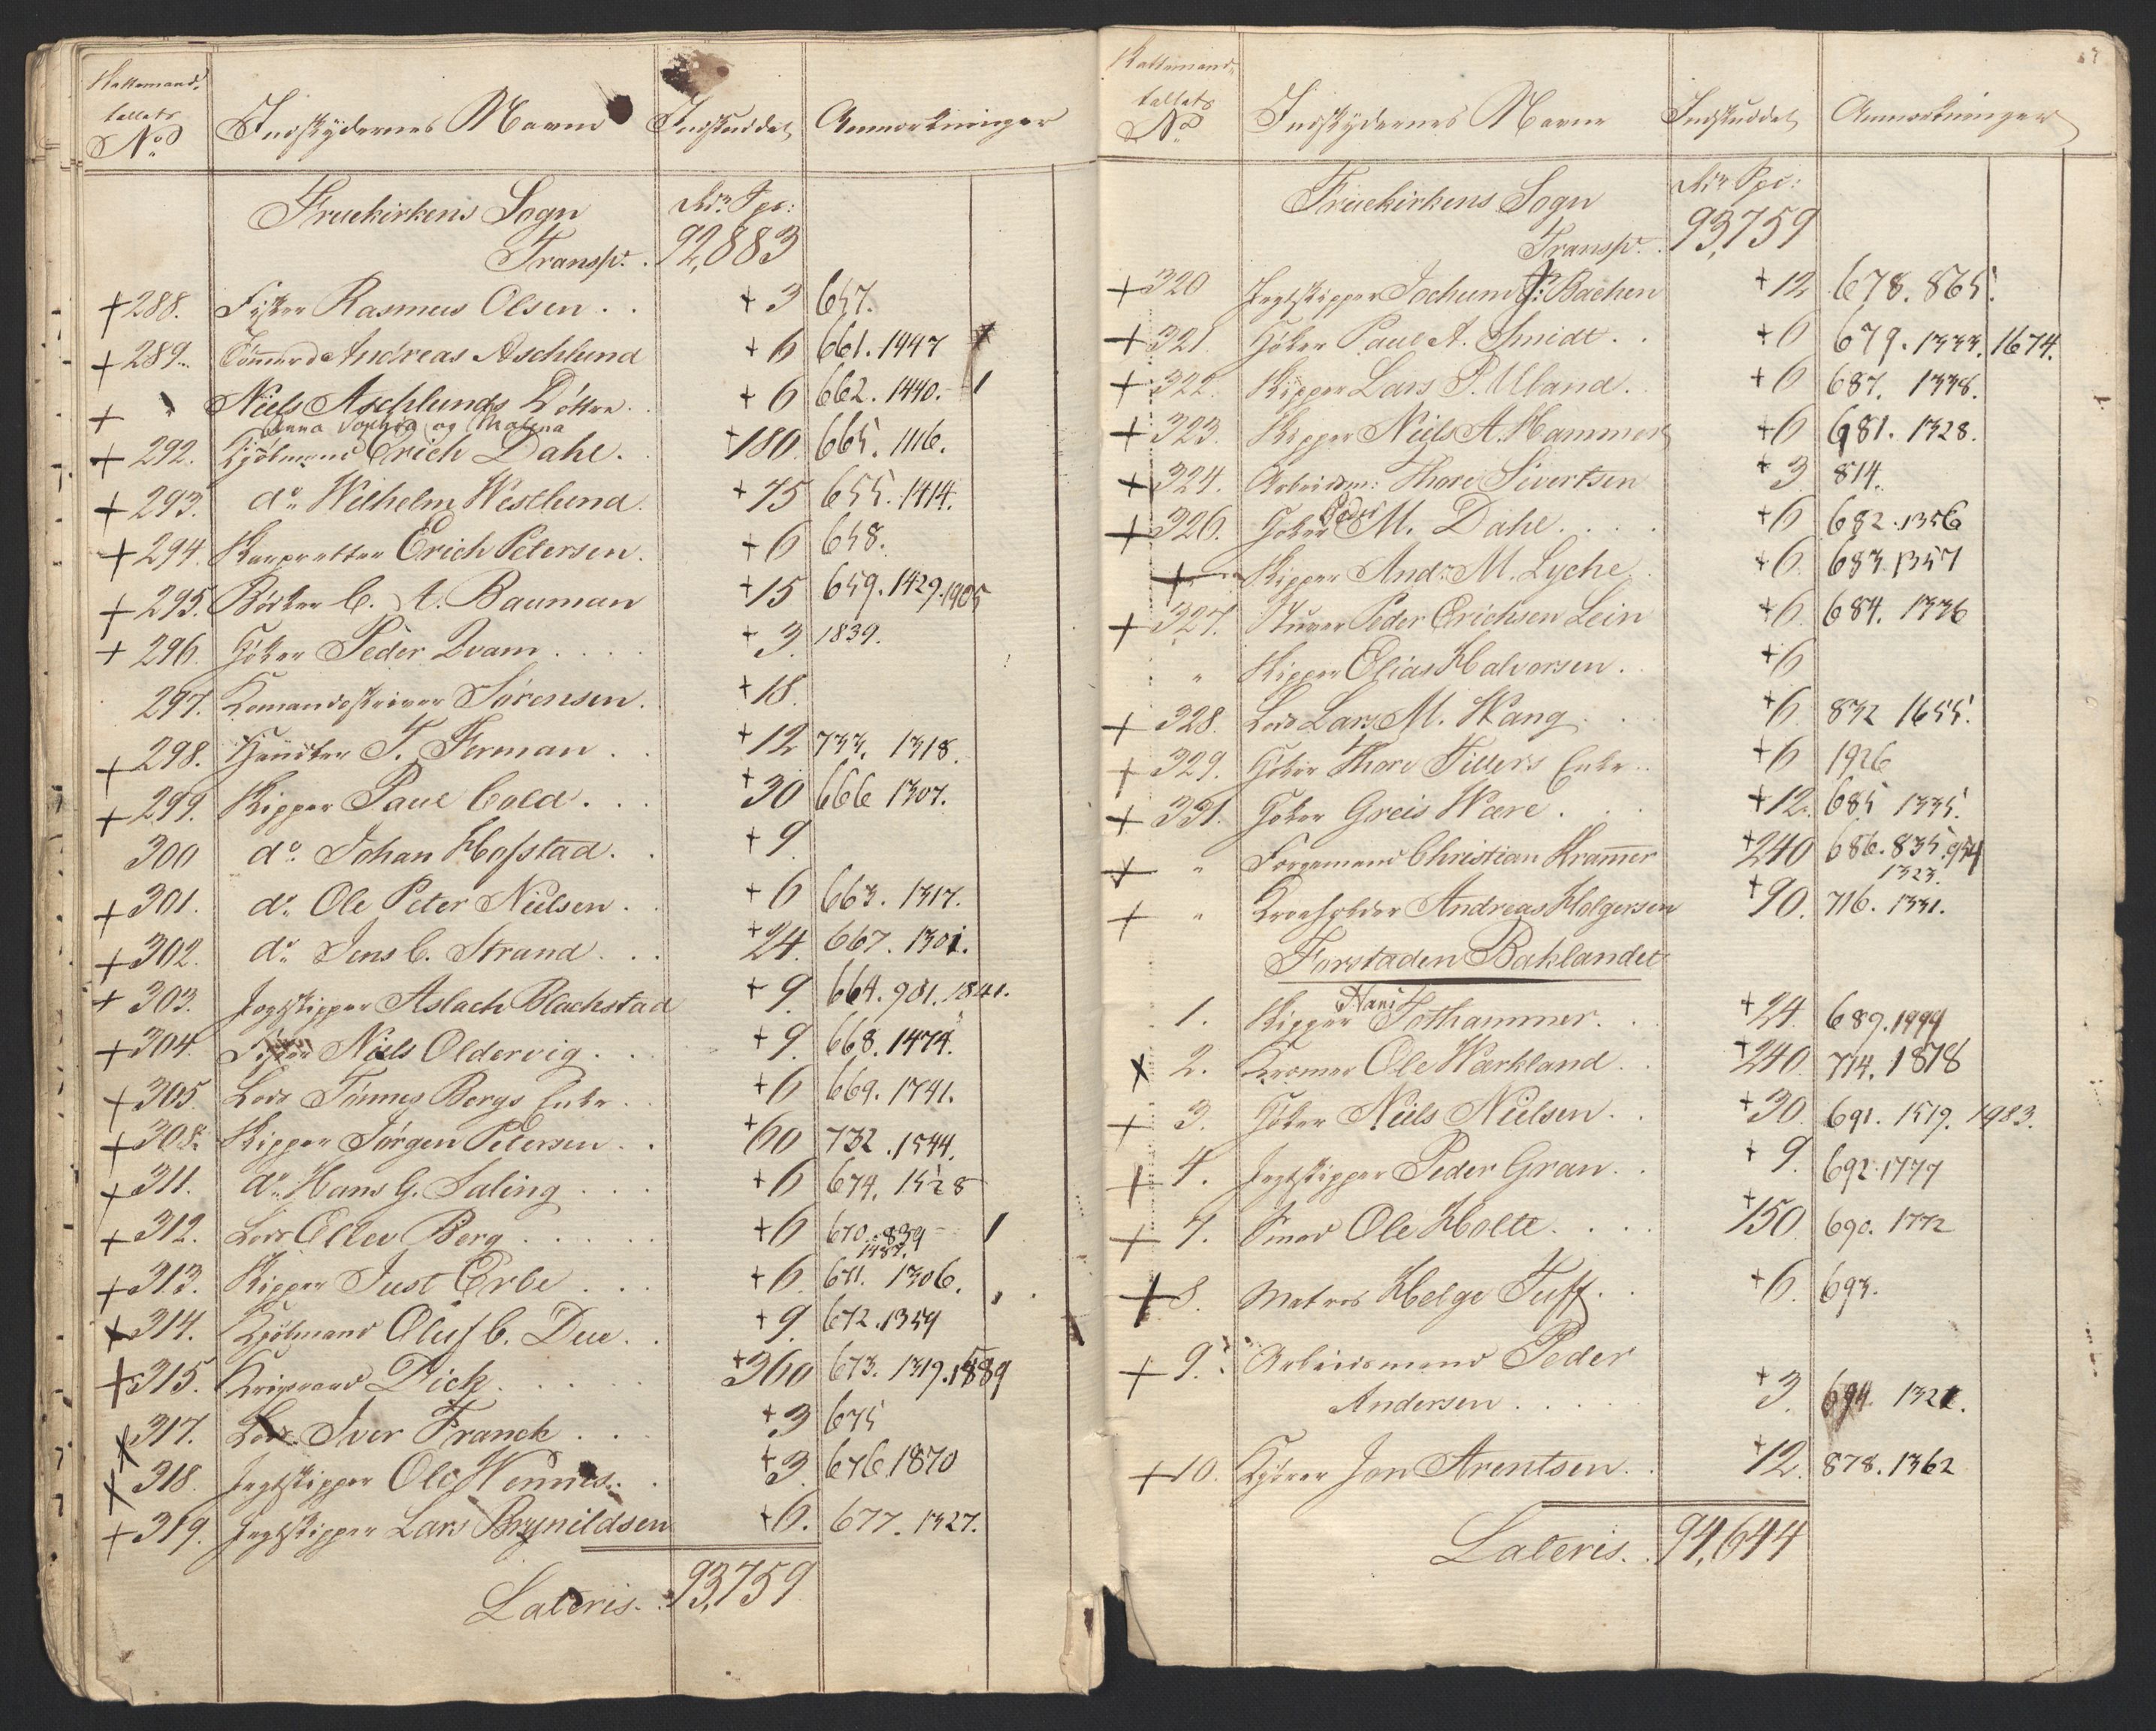 Skattemand-
tallets
No
Indskydernes Navne Indskuddet Anmærkninger
Fruekirkens Sogn Rdr. Spc:
Transpt. . 92,883
+ 288. Fisker Rasmus Olsen . . + 3 657.
+ 289. Tömmerd Andreas Aschlund + 6 661. 1447
+ " Niels Aschlunds Döttre . . + 6 662. 1440. - 1
Anna Sophia og Malena
+ 292. Kjöbmand Erich Dahl. + 180 665. 1116.
+ 293. do. Wilhelm Westlund. + 75 655. 1414.
+ 294. Skarpretter Erich Petersen. + 6 658.
+ 295. Bödker C. A. Bauman + 15 659. 1429. 1905
+ 296. Höker Peder Qvam . . . . + 3. 1839.
297. Comandoskriver Sörensen. + 18
+ 298. Handler T. Forman . . + 12 733. 1318.
+ 299. Skipper Paul Cold . . . + 30 666 1307.
300 do. Johan Hofstad. . + 9
+ 301. do. Ole Peter Nielsen . + 6 663. 1317.
+ 302. do. Jens C. Strand . . . + 24. 667. 1301.
+ 303. Jagtskipper Aslach Blachstad + 9. 664. 981. 1841.
+ 304. Niels Oldervig . . . + 9. 668. 1474.
+ 305. Lods Tönnes Bergs Enke . . + 6 669. 1741.
+ 308. Skipper Jörgen Petersen . . + 60 732. 1544.
+ 311. do. Hans G. Saling . . . + 6 674. 1528
+ 312. Lods Ellev Berg . . . . . + 6 670. 839 - 1
1487.
+ 313. Skipper Just Erbe . . . + 6. 671. 1306.
+ 314. Kjöbmand Oluf C. Due. . + 9. 672. 1359
+ 315. Krigsraad Dick . . . . . + 360 673. 1319. 1889
+ 317. Lods. Iver Franck . . . + 3 675
+ 318. Jagtskipper Ole Wennes. . . + 3. 676. 1870
+ 319. Jagtskipper Lars Brynildsen + 6. 677. 1327.
Lateris. . 93,759
67
Skattemand-
tallets
No
Indskydernes Navne Indskuddet Anmærkninger
Fruekirkens Sogn Rdr Spc:
Transpt. . 93,759
+ 320 Jagtskipper Jochum J: Bachen + 12 678. 865.
+ 321. Höker Paul A. Smidt . . + 6 679. 1333. 1674.
+ 322. Skipper Lars P. Uland. . + 6 687. 1338.
+ 323. Skipper Niels A. Hammer + 6 681. 1328.
+ 324. Arbeidsm: Thore Sivertsen + 3 814.
Peder
+ 326. Höker M. Dahl . . . . + 6 682. 1356
+ " Skipper Andr. M. Lyche . + 6. 683. 1357
+ 327. Stuver Peder Erichsen Lein + 6. 684. 1336
" Skipper Elias Halvorsen. . + 6
+ 328. Lods Lars M. Wang . . . + 6. 832 1655.
+ 329. Höker Thore Tillers Enke . . + 6 1926
+ 331. Höker Greis Wære . . . + 12. 685 1335.
+ " Borgermand Christian Kramer + 240 686. 835. 954
1323.
+ " Kroeholder Andreas Holgersen + 90. 716. 1331.
Forstaden Baklandet
Hans
1. Skipper Tothammer. . + 24. 689. 1999
+ 2. Kræmer Ole Warkland . . + 240 714. 1878
+ 3. Höker Niels Nielsen . . + 30. 691. 1519. 1983.
+ 4. Jagtskipper Peder Gran . . + 9. 692. 1777
+ 7. Smed Ole Holte . . . . + 150. 690. 1772
+ 8. Matros Helge Tuff. . . + 6. 693.
+ 9. Arbeidsmand Peder
Andersen . . . . . + 3. 694 1321.
+ 10. Kjörer Jon Arentsen. . + 12. 878. 1362
Lateris. . 94,644